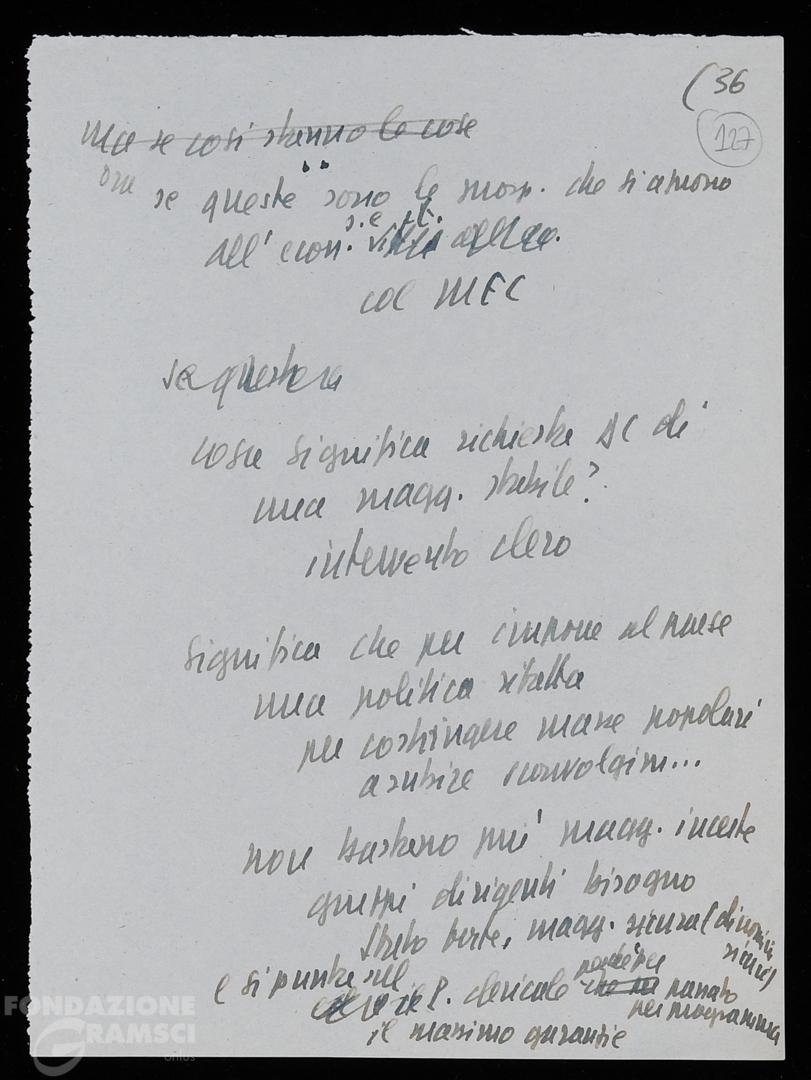 (36
127
ma se così stanno le cose
ora se queste sono le prosp. che si aprono
all' econ.
s. e pol.
col MEC
se questa
cosa significa richiesta DC di
una magg. stabile?
intervento clero
significa che per imporre al paese
una politica
per costringere masse popolari
a subire sconvolgim...
non bastano più magg. incerte
gruppi dirigenti bisogno
Stato forte, magg. sicura (di uomini
sicuri)
e si punta sul
P. clericale perché per passato
per programma
il massimo garanzie
FONDAZIONE
GRAMSCI
onlus